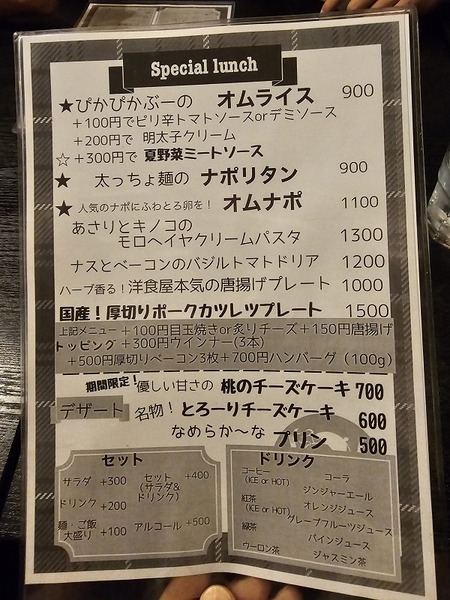 Special lunch
★ぴかぴかぶーの オムライス 900
+100円でピリ辛トマトソースorデミソース
+200円で 明太子クリーム
☆+300円で 夏野菜ミートソース
★ 太っちょ麺の ナポリタン 900
★人気のナポにふわとろ卵を! オムナポ 1100
あさりとキノコの
モロヘイヤクリームパスタ 1300
ナスとベーコンのバジルトマトドリア 1200
ハーブ香る!洋食屋本気の唐揚げプレート 1000
国産!厚切りポークカツレツプレート 1500
上記メニュー +100円目玉焼きor炙りチーズ +150円唐揚げ
トッピング +300円ウインナー(3本)
+500円厚切りベーコン3枚 +700円ハンバーグ(100g)
期間限定!優しい甘さの 桃のチーズケーキ 700
デザート 名物! とろーりチーズケーキ 600
なめらか〜な プリン 500
セット
サラダ +300
ドリンク +200
麺・ご飯
大盛り +100
セット
(サラダ&
ドリンク) +400
アルコール +500
ドリンク
コーヒー
(ICE or HOT)
紅茶
(ICE or HOT)
緑茶
ウーロン茶
コーラ
ジンジャーエール
オレンジジュース
グレープフルーツジュース
パインジュース
ジャスミン茶